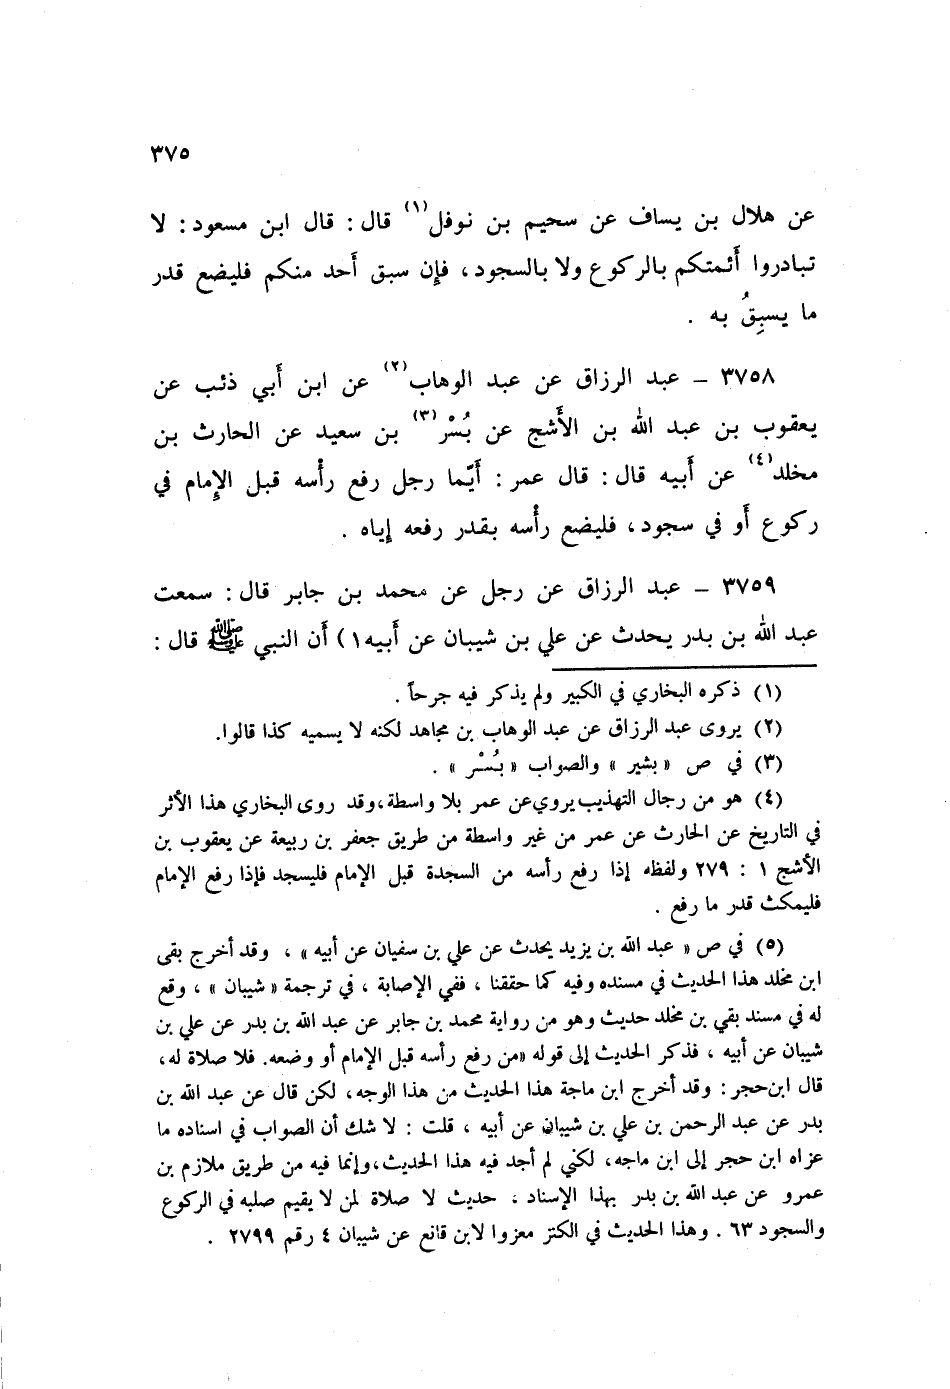 ٣٧٥
عن هلال بن يساف عن سحيم بن نوفل(١) قال : قال ابن مسعود : لا
تبادروا أَئمتكم بالركوع ولا بالسجود ، فإن سبق أحد منكم فليضع قدر
ما يسبِقُ به .
٣٧٥٨ – عبد الرزاق عن عبد الوهاب(٢) عن ابن أَبي ذئب عن
يعقوب بن عبد الله بن الأَشج عن بُسْر(٣) بن سعيد عن الحارث بن
مخلد(٤) عن أَبيه قال : قال عمر : أَيّما رجل رفع رأْسه قبل الإِمام في
ركوع أَو في سجود ، فليضع رأْسه بقدر رفعه إِياه .
٣٧٥٩ – عبد الرزاق عن رجل عن محمد بن جابر قال : سمعت
عبد الله بن بدر يحدث عن علي بن شيبان عن أَبيه١) أَن النبي ﷺ قال :
(١) ذكره البخاري في الكبير ولم يذكر فيه جرحاً .
(٢) يروى عبد الرزاق عن عبد الوهاب بن مجاهد لكنه لا يسميه كذا قالوا.
(٣) في ص « بشير » والصواب « بُسْر » .
(٤) هو من رجال التهذيب يروي عن عمر بلا واسطة ،وقد روى البخاري هذا الأثر
في التاريخ عن الحارث عن عمر من غير واسطة من طريق جعفر بن ربيعة عن يعقوب بن
الأشج ١ : ٢٧٩ ولفظه إذا رفع رأسه من السجدة قبل الإمام فليسجد فإذا رفع الإمام
فليمكث قدر ما رفع .
(٥) في ص « عبد الله بن يزيد يحدث عن علي بن سفيان عن أبيه » ، وقد أخرج بقى
ابن مخلد هذا الحديث في مسنده وفيه كما حققنا ، ففي الإصابة ، في ترجمة « شيبان » ، وقع
له في مسند بقي بن مخلد حديث وهو من رواية محمد بن جابر عن عبد الله بن بدر عن علي بن
شيبان عن أبيه ، فذكر الحديث إلى قوله «من رفع رأسه قبل الإمام أو وضعه. فلا صلاة له،
قال ابن حجر : وقد أخرج ابن ماجة هذا الحديث من هذا الوجه ، لكن قال عن عبد الله بن
بدر عن عبد الرحمن بن علي بن شيبان عن أبيه ، قلت : لا شك أن الصواب في اسناده ما
عزاه ابن حجر إلى ابن ماجه، لكني لم أجد فيه هذا الحديث،وإنما فيه من طريق ملازم بن
عمرو عن عبد الله بن بدر بهذا الإسناد ، حديث لا صلاة لمن لا يقيم صلبه في الركوع
والسجود ٦٣ . وهذا الحديث في الكنز معزوا لابن قانع عن شيبان ٤ رقم ٢٧٩٩ .